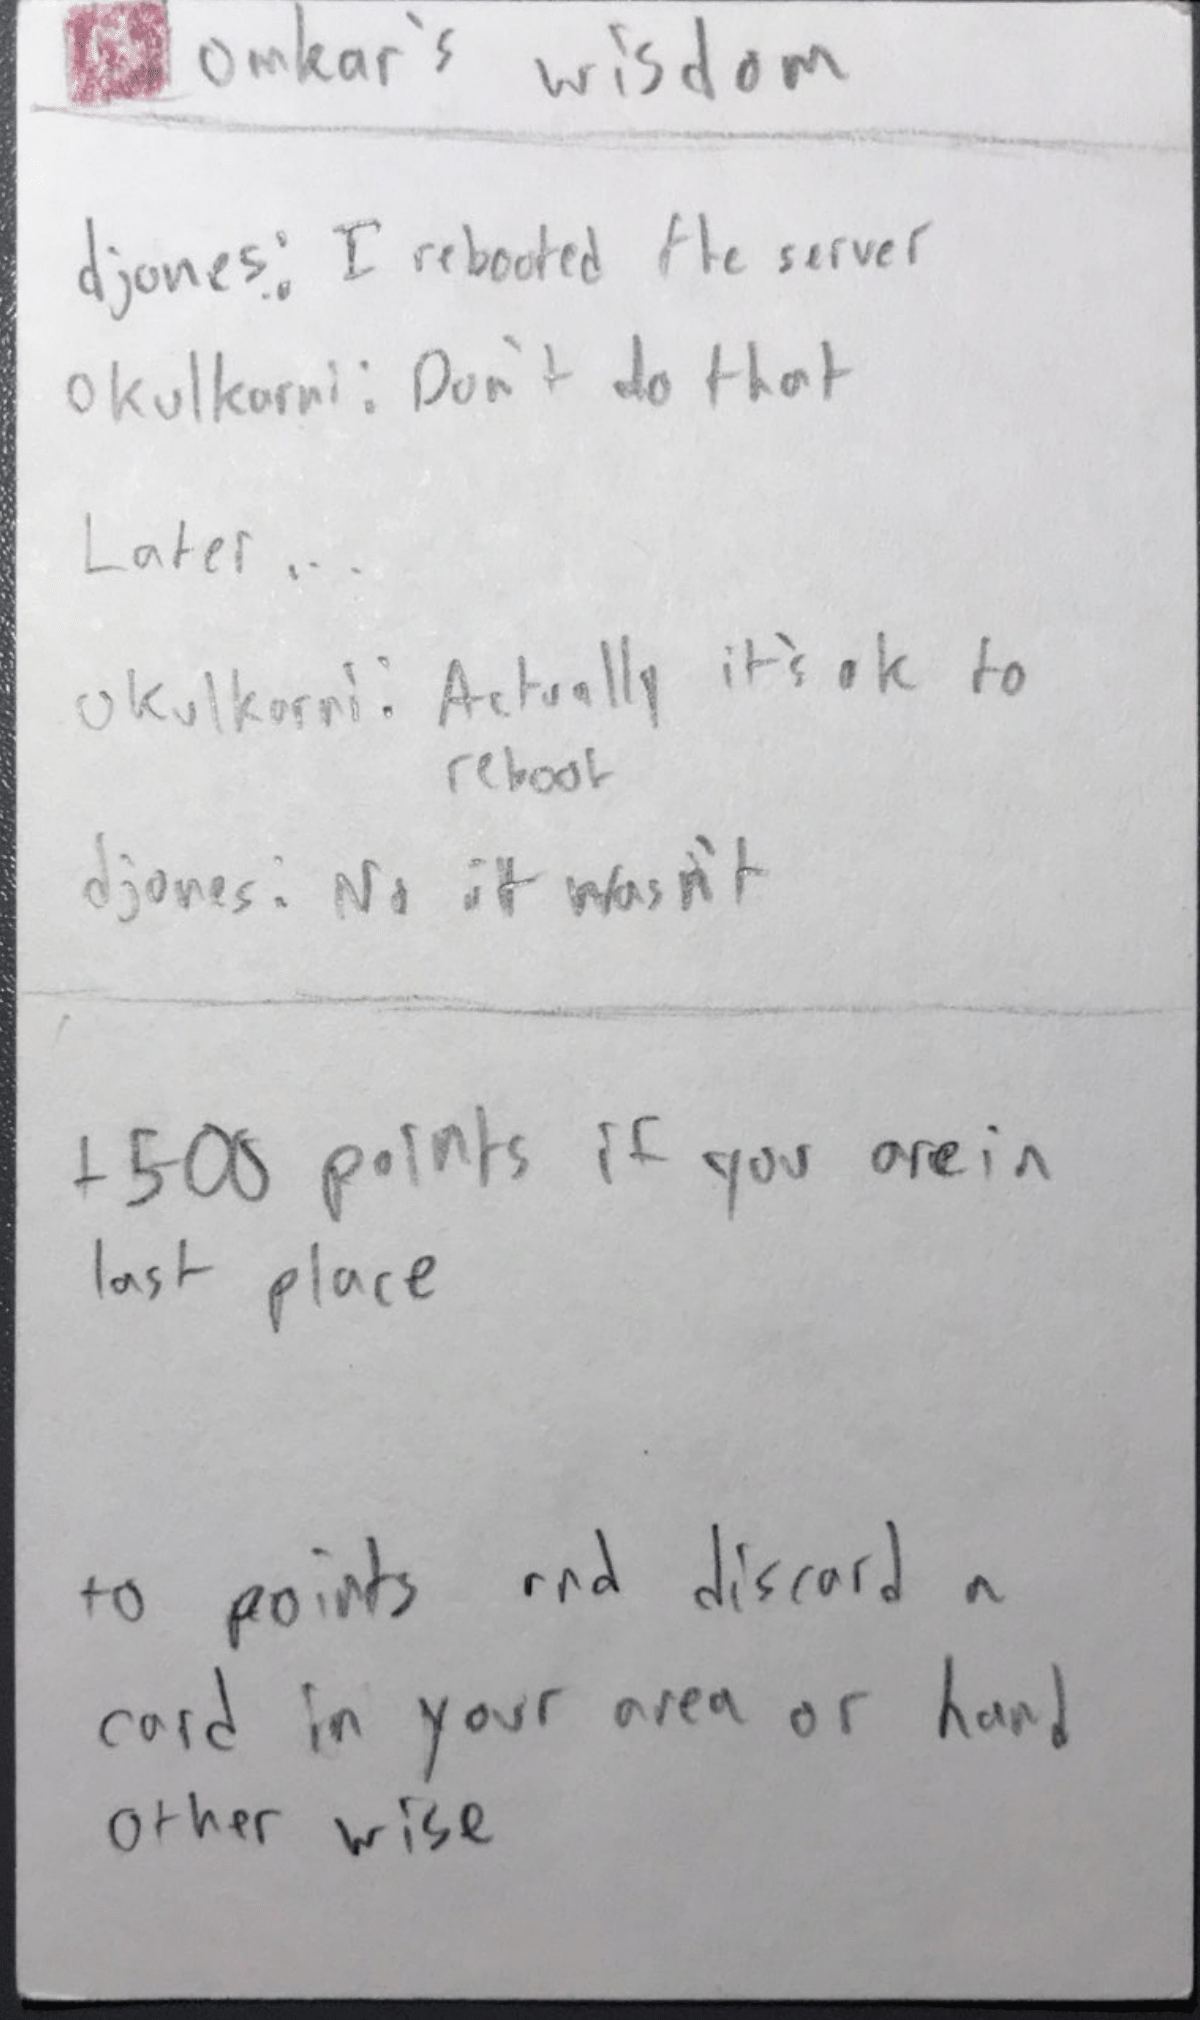 omkar's wisdom
djones: I rebooted the server
okulkarni: Don't do that
Later...
okulkarni: Actually it's ok to
reboot
djones: No it wasn't
+500 points if you are in
last place
+0 points and discard a
card in your area or hand
other wise